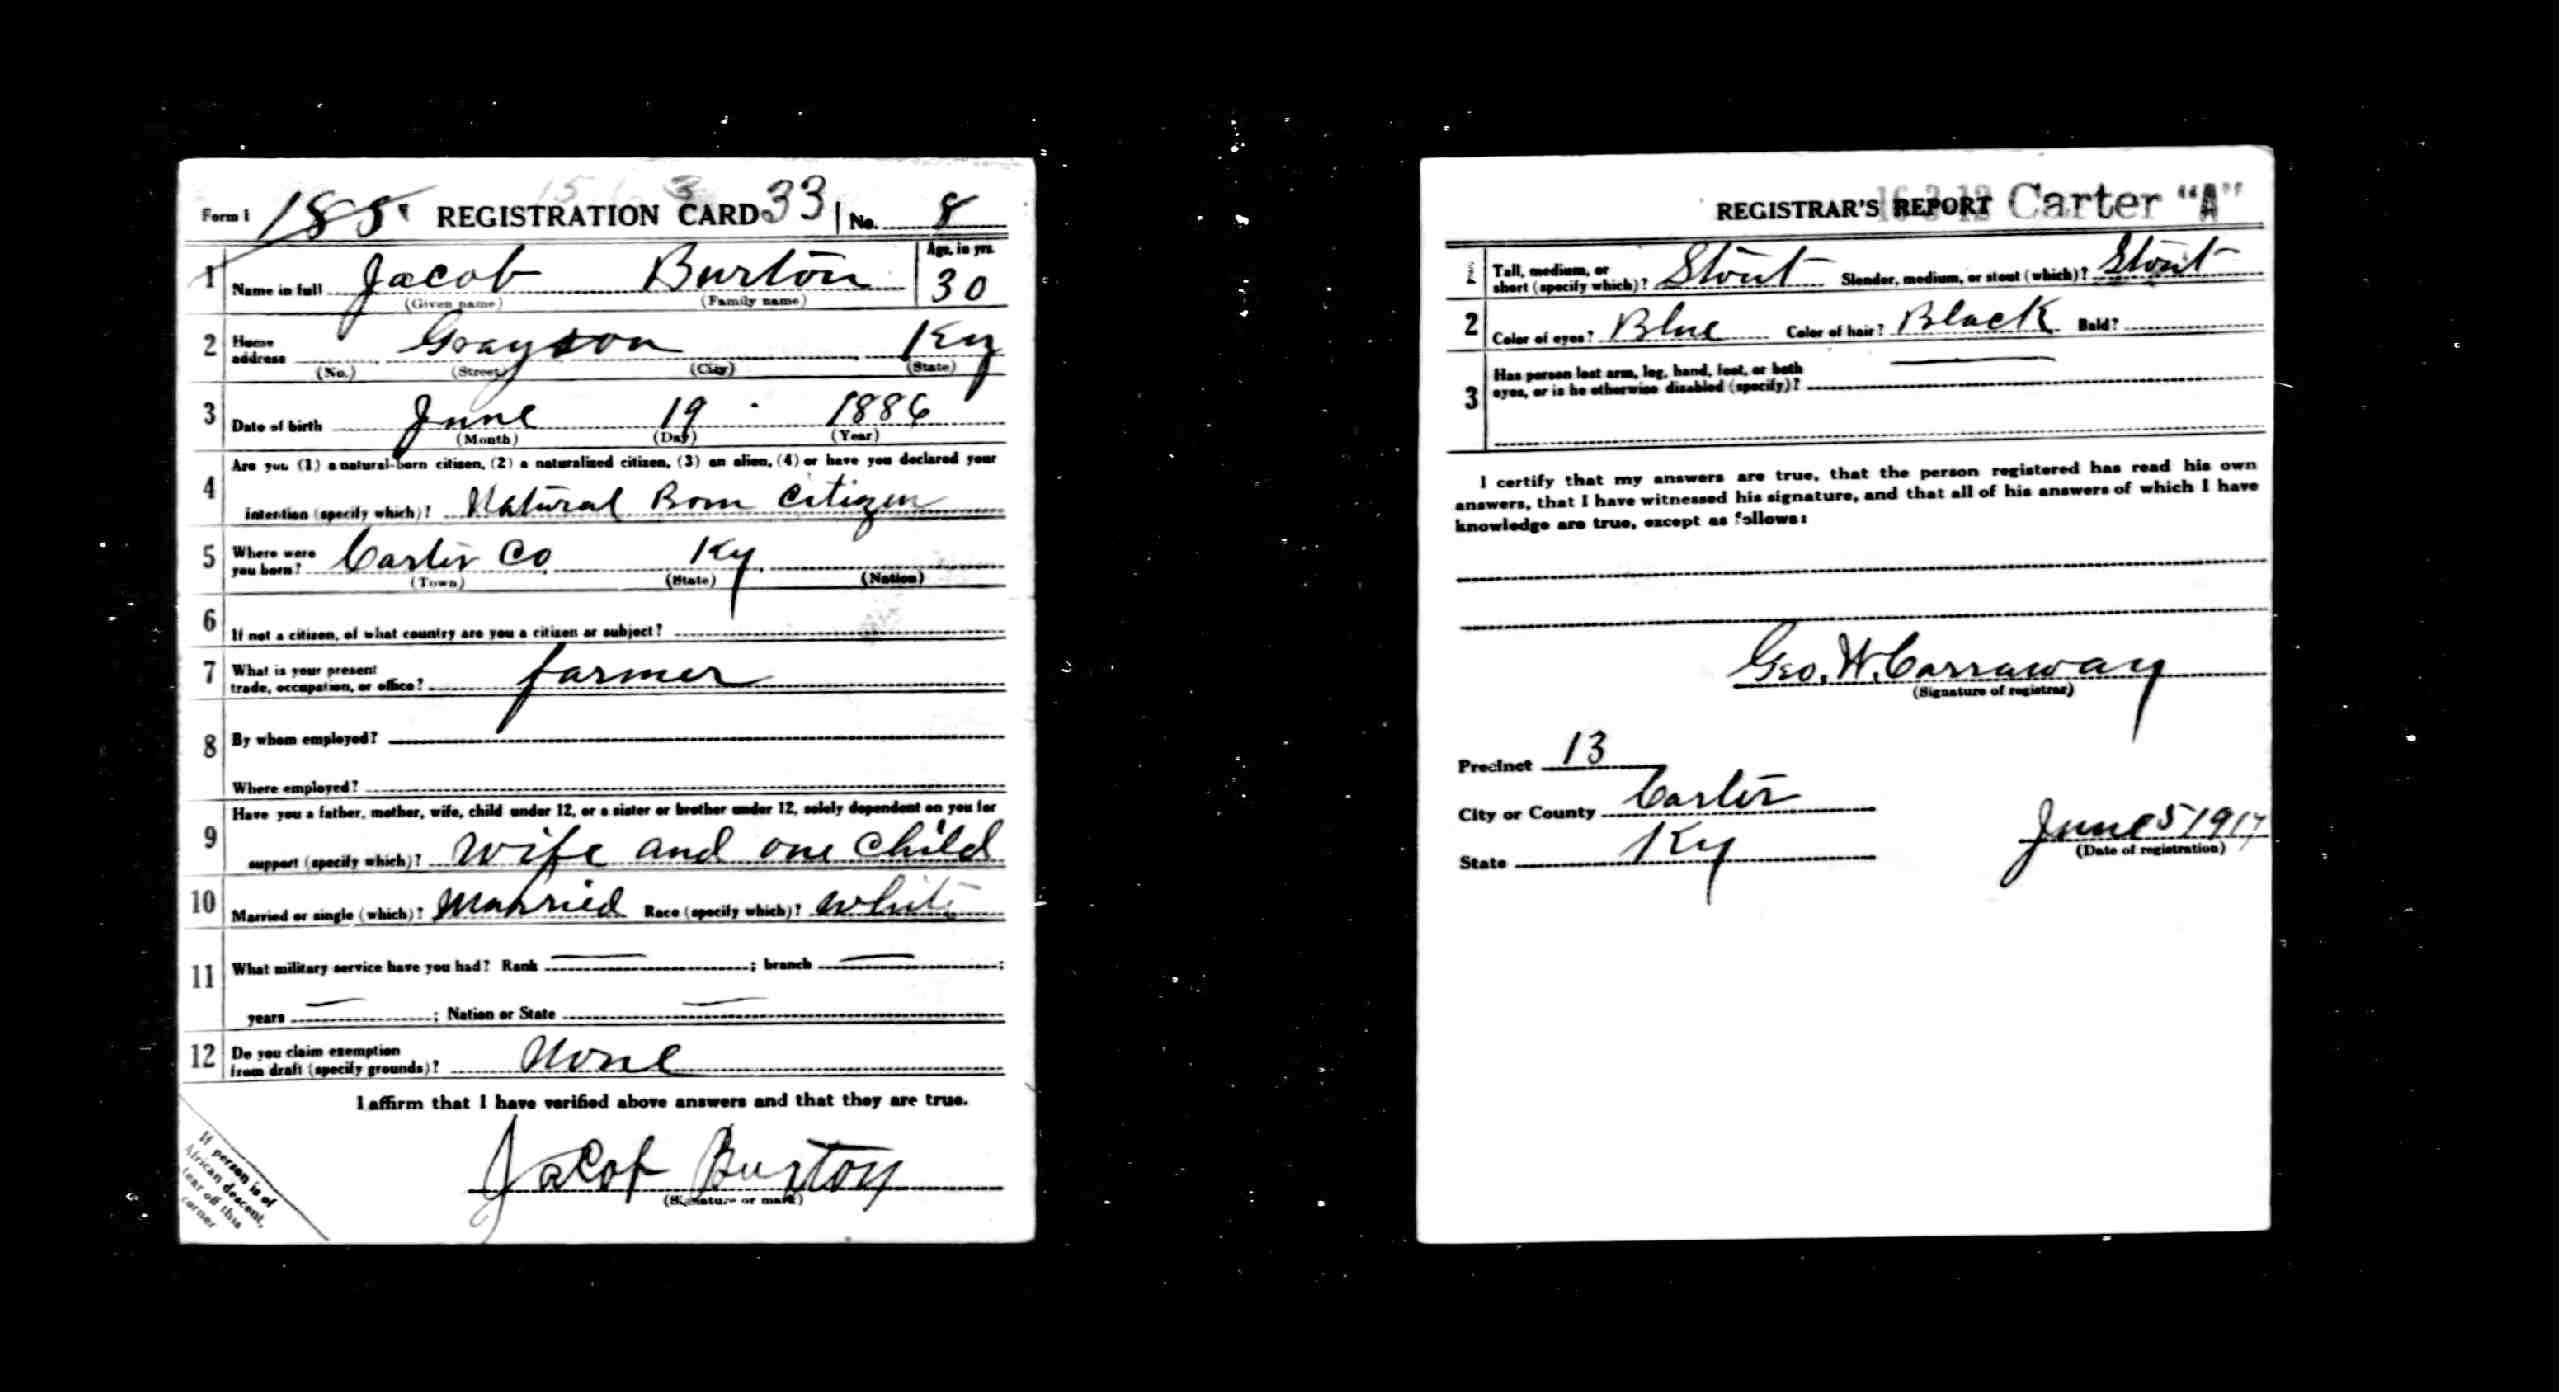 Form 1 185 REGISTRATION CARD 33 No. 8
1 Name in full Jacob Burton Age, in yrs. 30
(Given name) (Family name)
2 Home address Grayson Ky
(No.) (Street) (City) (State)
3 Date of birth June 19 1886
(Month) (Day) (Year)
4 Are you (1) a natural-born citizen, (2) a naturalized citizen, (3) an alien, (4) or have you declared your
intention (specify which)? Natural Born Citizen
5 Where were you born? Carter Co Ky
(Town) (State) (Nation)
6 If not a citizen, of what country are you a citizen or subject?
7 What is your present
trade, occupation, or office? farmer
8 By whom employed?
Where employed?
9 Have you a father, mother, wife, child under 12, or a sister or brother under 12, solely dependent on you for
support (specify which)? Wife and one child
10 Married or single (which)? Married Race (specify which)? White
11 What military service have you had? Rank ; branch ;
years ; Nation or State
12 Do you claim exemption
from draft (specify grounds)? None
I affirm that I have verified above answers and that they are true.
Jacob Burton
(Signature or mark)
If person is of
African descent,
tear off this
corner
REGISTRAR'S REPORT Carter "A"
1 Tall, medium, or
short (specify which)? Stout Slender, medium, or stout (which)? Stout
2 Color of eyes? Blue Color of hair? Black Bald?
3 Has person lost arm, leg, hand, foot, or both
eyes, or is he otherwise disabled (specify)?
I certify that my answers are true, that the person registered has read his own
answers, that I have witnessed his signature, and that all of his answers of which I have
knowledge are true, except as follows:
Geo. W. Carraway
(Signature of registrar)
Precinct 13
City or County Carter
State Ky
June 5 1917
(Date of registration)